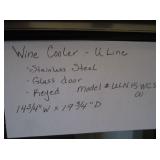 Wine Cooler - U Line
- Stainless Steel
- Glass door
- Keyed Model # ULN 15 WCS
00
14 3/4" W x 19 3/4" D